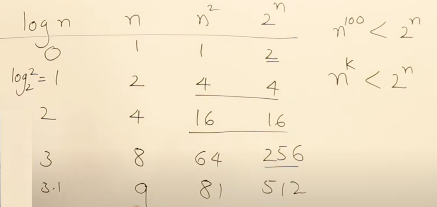 log n n n² 2ⁿ
0 1 1 2
log₂2 = 1 2 4 4
2 4 16 16
3 8 64 256
3.1 9 81 512
n¹⁰⁰ < 2ⁿ
nᵏ < 2ⁿ